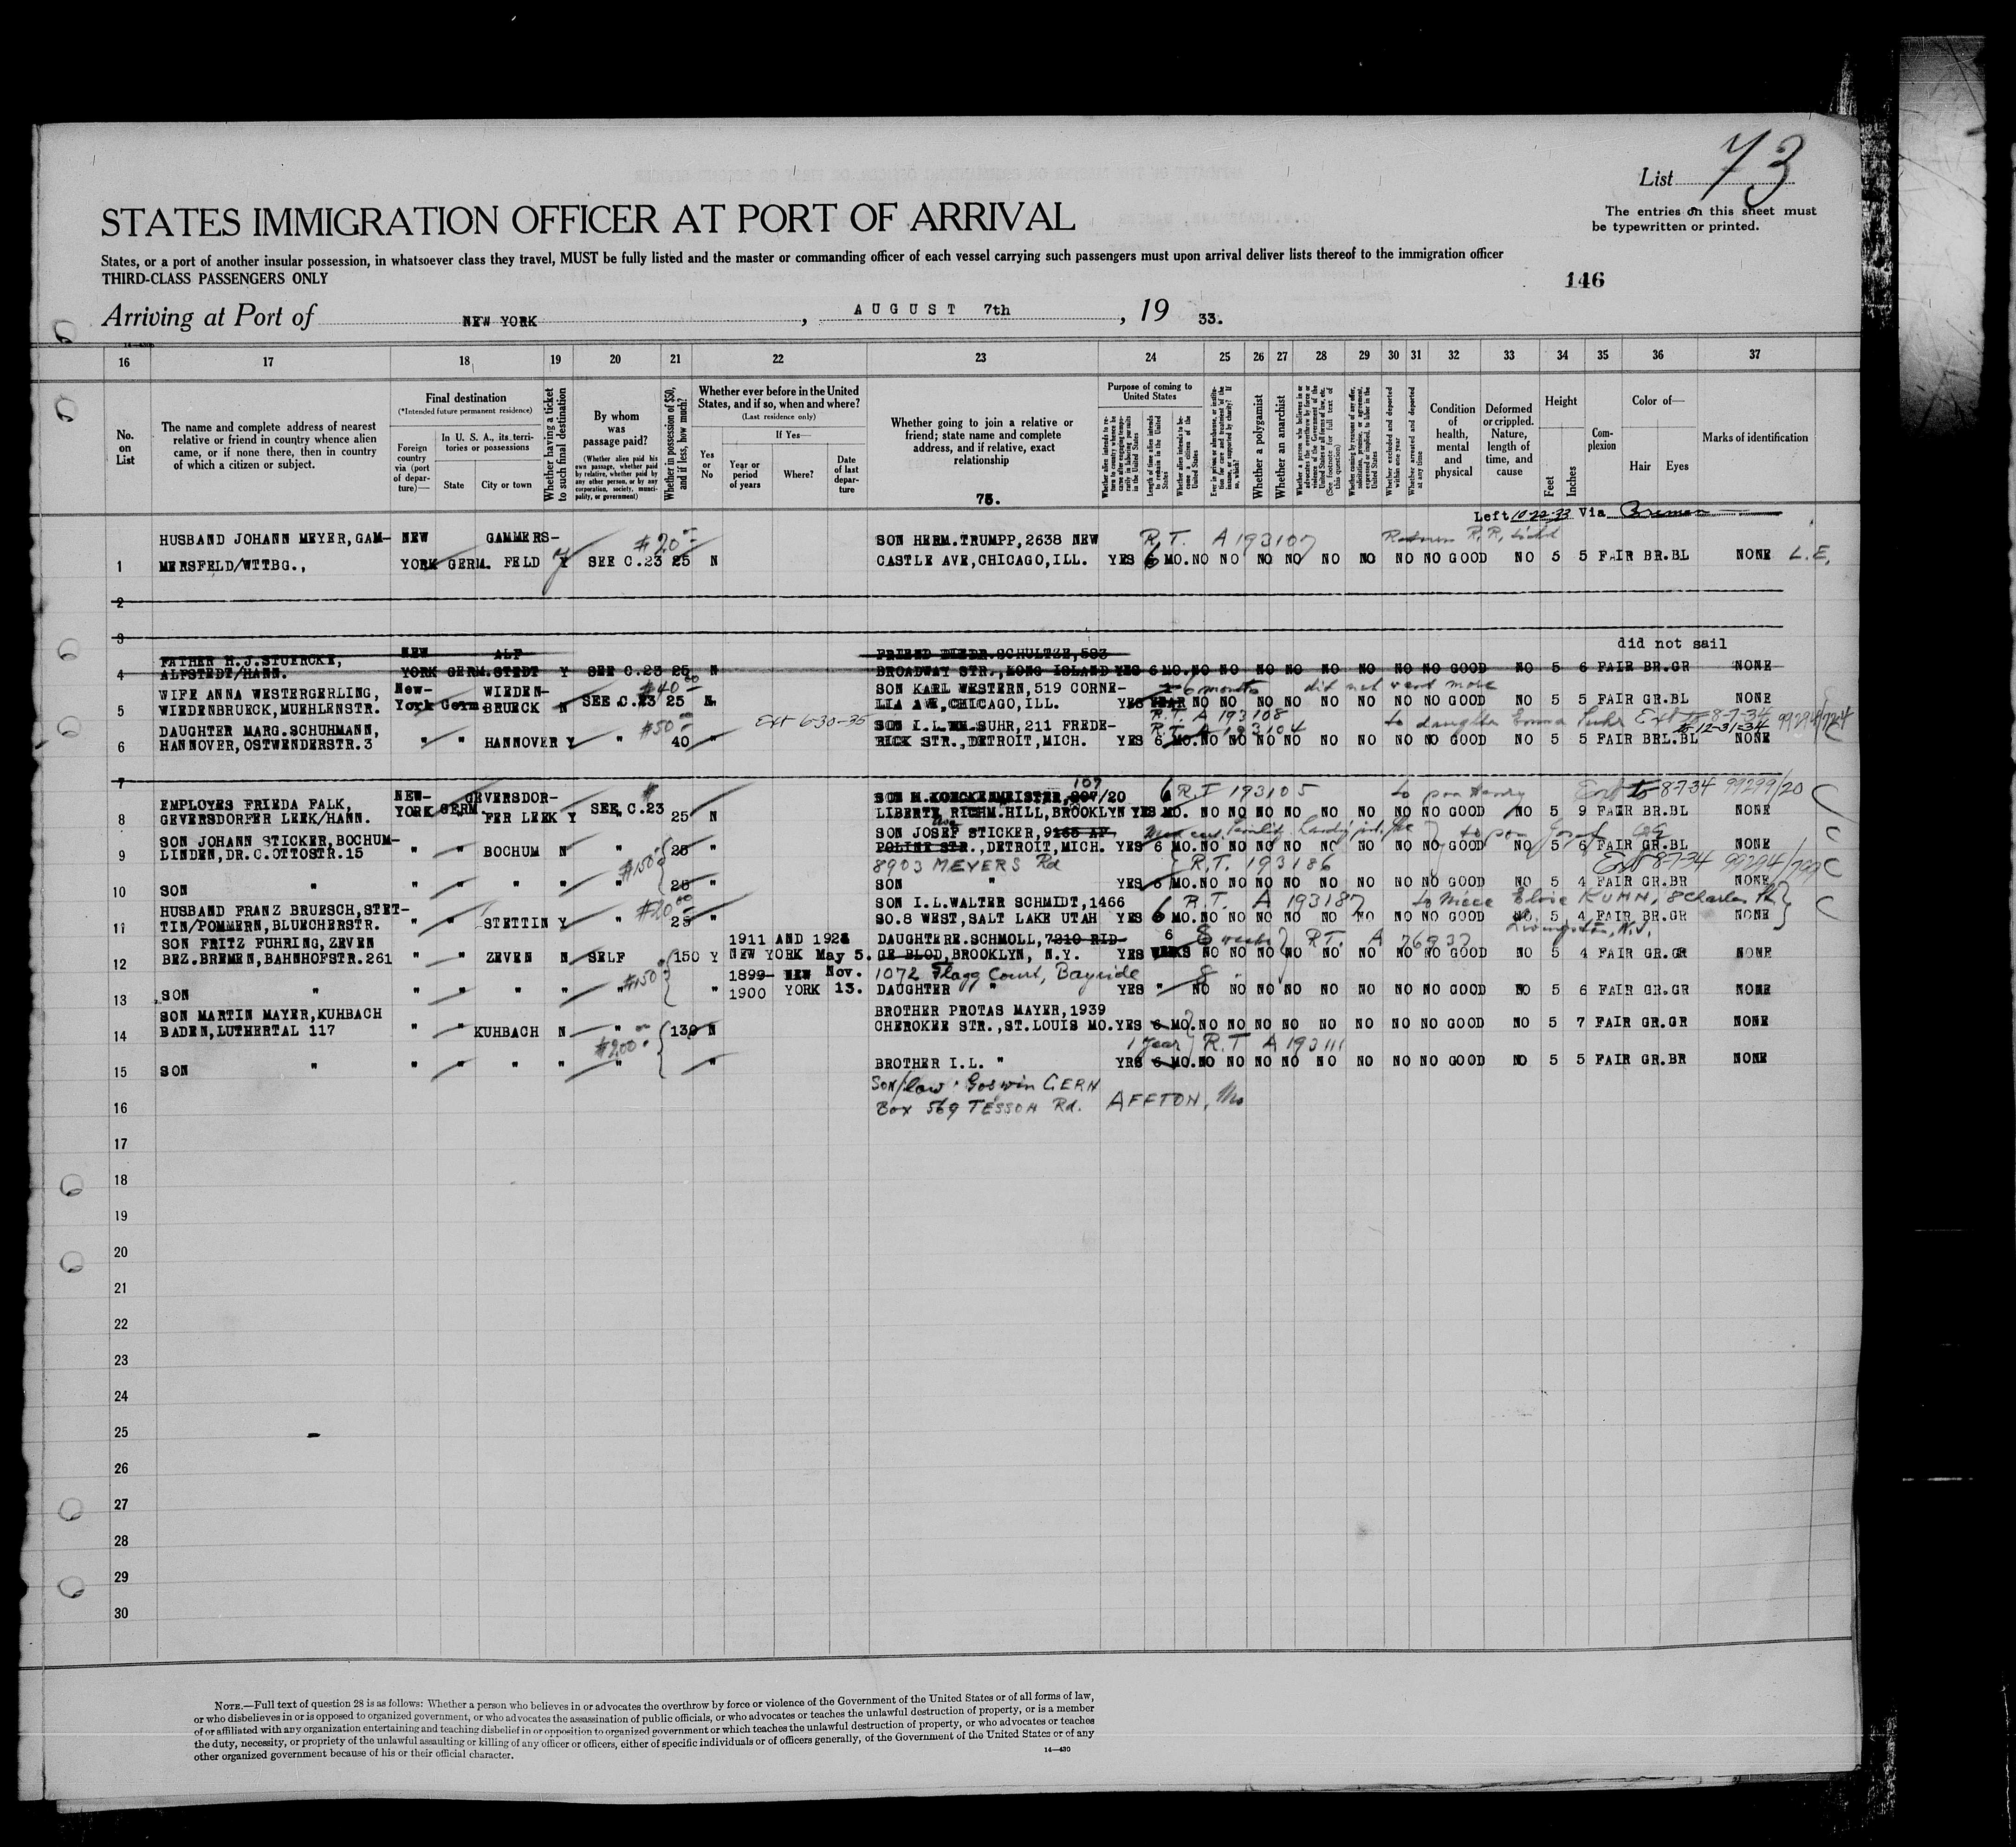 List 73
The entries on this sheet must
be typewritten or printed.
STATES IMMIGRATION OFFICER AT PORT OF ARRIVAL
States, or a port of another insular possession, in whatsoever class they travel, MUST be fully listed and the master or commanding officer of each vessel carrying such passengers must upon arrival deliver lists thereof to the immigration officer
THIRD-CLASS PASSENGERS ONLY
146
Arriving at Port of NEW YORK, AUGUST 7th, 19 33.
16 17 18 19 20 21 22 23 24 25 26 27 28 29 30 31 32 33 34 35 36 37
No. on List
The name and complete address of nearest relative or friend in country whence alien came, or if none there, then in country of which a citizen or subject.
Final destination
(*Intended future permanent residence)
Foreign country via (port of departure)—
In U. S. A., its territories or possessions
State
City or town
Whether having a ticket to such final destination
By whom was passage paid?
(Whether alien paid his own passage, whether paid by relative, whether paid by any other person, or by any corporation, society, municipality, or government)
Whether in possession of $50, and if less, how much?
Whether ever before in the United States, and if so, when and where?
(Last residence only)
Yes or No
If Yes—
Year or period of years
Where?
Date of last departure
Whether going to join a relative or friend; state name and complete address, and if relative, exact relationship
73.
Purpose of coming to United States
Whether alien intends to return to country whence he came after engaging temporarily in laboring pursuits in the United States
Length of time alien intends to remain in the United States
Whether alien intends to become a citizen of the United States
Ever in prison or almshouse, or institution for care and treatment of the insane, or supported by charity? If so, which?
Whether a polygamist
Whether an anarchist
Whether a person who believes in or advocates the overthrow by force or violence of the Government of the United States or all forms of law, etc. (See footnote for full text of this question)
Whether coming by reason of any offer, solicitation, promise, or agreement, expressed or implied, to labor in the United States
Whether excluded and deported within one year
Whether arrested and deported at any time
Condition of health, mental and physical
Deformed or crippled. Nature, length of time, and cause
Height
Feet
Inches
Complexion
Color of—
Hair Eyes
Marks of identification
Left 10-22-33 Via Bremen
HUSBAND JOHANN MEYER, GAM- NEW GAMMERS- $20 SON HERM.TRUMPP, 2638 NEW R.T. A193107
1 MERSFELD/WTTBG., YORK GERM. FELD Y SEE C.23 25 N CASTLE AVE, CHICAGO, ILL. YES 6 MO. NO NO NO NO NO NO NO NO GOOD NO 5 5 FAIR BR.BL NONE L.E.
2
3
did not sail
FATHER H.J.STUERCKE, NEW ALF FRIEND DIEDR.SCHULTZE, 583
4 ALFSTEDT/HANN. YORK GERM. STEDT Y SEE C.23 25 N BROADWAY STR., LONG ISLAND YES 6 MO. NO NO NO NO NO NO NO NO GOOD NO 5 6 FAIR BR.GR NONE
WIFE ANNA WESTERGERLING, New- WIEDEN- $40 SON KARL WESTERN, 519 CORNE- 6 months did not want more
5 WIEDENBRUECK, MUEHLENSTR. York Germ BRUECK N SEE C.23 25 N LIA AVE, CHICAGO, ILL. YES YEAR NO NO NO NO NO NO NO NO GOOD NO 5 5 FAIR GR.BL NONE
R.T. A 193108
DAUGHTER MARG.SCHUHMANN, $50 Ext 6-30-35 SON I.L.WM.SUHR, 211 FREDE- R.T. A 193104 to daughter Emma Suhr Ext to 8-7-34 to 12-31-34
6 HANNOVER, OSTWENDERSTR.3 " " HANNOVER Y " 40 " RICK STR., DETROIT, MICH. YES 6 MO. NO NO NO NO NO NO NO NO GOOD NO 5 5 FAIR BRL.BL NONE
7
107
EMPLOYES FRIEDA FALK, NEW- GEVERSDOR- /20 R.T 193105 Ext to 8-7-34 99299/20
8 GEVERSDORFER LEEK/HANN. YORK GERM FER LEEK Y SEE C.23 25 N LIBERTY RICHM.HILL, BROOKLYN YES MO. NO NO NO NO NO NO NO NO GOOD NO 5 9 FAIR BR.BL NONE
SON JOHANN STICKER, BOCHUM- SON JOSEF STICKER, 9165 AP-
9 LINDEN, DR.C.OTTOSTR.15 " " BOCHUM N " 25 " POLINE STR., DETROIT, MICH. YES 6 MO. NO NO NO NO NO NO NO NO GOOD NO 5 6 FAIR GR.BL NONE
$150 8903 MEYERS Rd R.T. 193186 Ext 8-7-34 99294/799
10 SON " " " " " " 25 " SON " YES 6 MO. NO NO NO NO NO NO NO NO GOOD NO 5 4 FAIR GR.BR NONE
HUSBAND FRANZ BRUESCH, STET- $20 SON I.L.WALTER SCHMIDT, 1466 6 R.T. A 193187 to niece Eloise KUHN, 8 Charles Pl
11 TIN/POMMERN, BLUECHERSTR. " " STETTIN Y " 25 " SO.8 WEST, SALT LAKE UTAH YES 6 MO. NO NO NO NO NO NO NO NO GOOD NO 5 4 FAIR BR.GR NONE
Livingston, N.J.
SON FRITZ FUHRING, ZEVEN 1911 AND 1928 DAUGHTER E.SCHMOLL, 7210 RID- 6 8 weeks R.T. A 76937
12 BEZ.BREMEN, BAHNHOFSTR.261 " " ZEVEN N SELF 150 Y NEW YORK May 5. GE BLOD, BROOKLYN, N.Y. YES WEEKS NO NO NO NO NO NO NO NO GOOD NO 5 4 FAIR GR.GR NONE
$150 1899- NEW Nov. 1072 Flagg Court, Bayside 8 "
13 SON " " " " " " " 1900 YORK 13. DAUGHTER " YES " NO NO NO NO NO NO NO NO GOOD NO 5 6 FAIR GR.GR NONE
SON MARTIN MAYER, KUHBACH BROTHER PROTAS MAYER, 1939
14 BADEN, LUTHERTAL 117 " " KUHBACH N " 130 N CHEROKEE STR., ST.LOUIS MO. YES 6 MO. NO NO NO NO NO NO NO NO GOOD NO 5 7 FAIR GR.GR NONE
$200 1 year R.T A 193111
15 SON " " " " " " " BROTHER I.L. " YES 6 MO. NO NO NO NO NO NO NO NO GOOD NO 5 5 FAIR GR.BR NONE
Son/law Goswin GERN
16 Box 569 TESSON Rd. AFFTON, Mo
17
18
19
20
21
22
23
24
25
26
27
28
29
30
NOTE.—Full text of question 28 is as follows: Whether a person who believes in or advocates the overthrow by force or violence of the Government of the United States or of all forms of law,
or who disbelieves in or is opposed to organized government, or who advocates the assassination of public officials, or who advocates or teaches the unlawful destruction of property, or is a member
of or affiliated with any organization entertaining and teaching disbelief in or opposition to organized government or which teaches the unlawful destruction of property, or who advocates or teaches
the duty, necessity, or propriety of the unlawful assaulting or killing of any officer or officers, either of specific individuals or of officers generally, of the Government of the United States or of any
other organized government because of his or their official character.
14—430